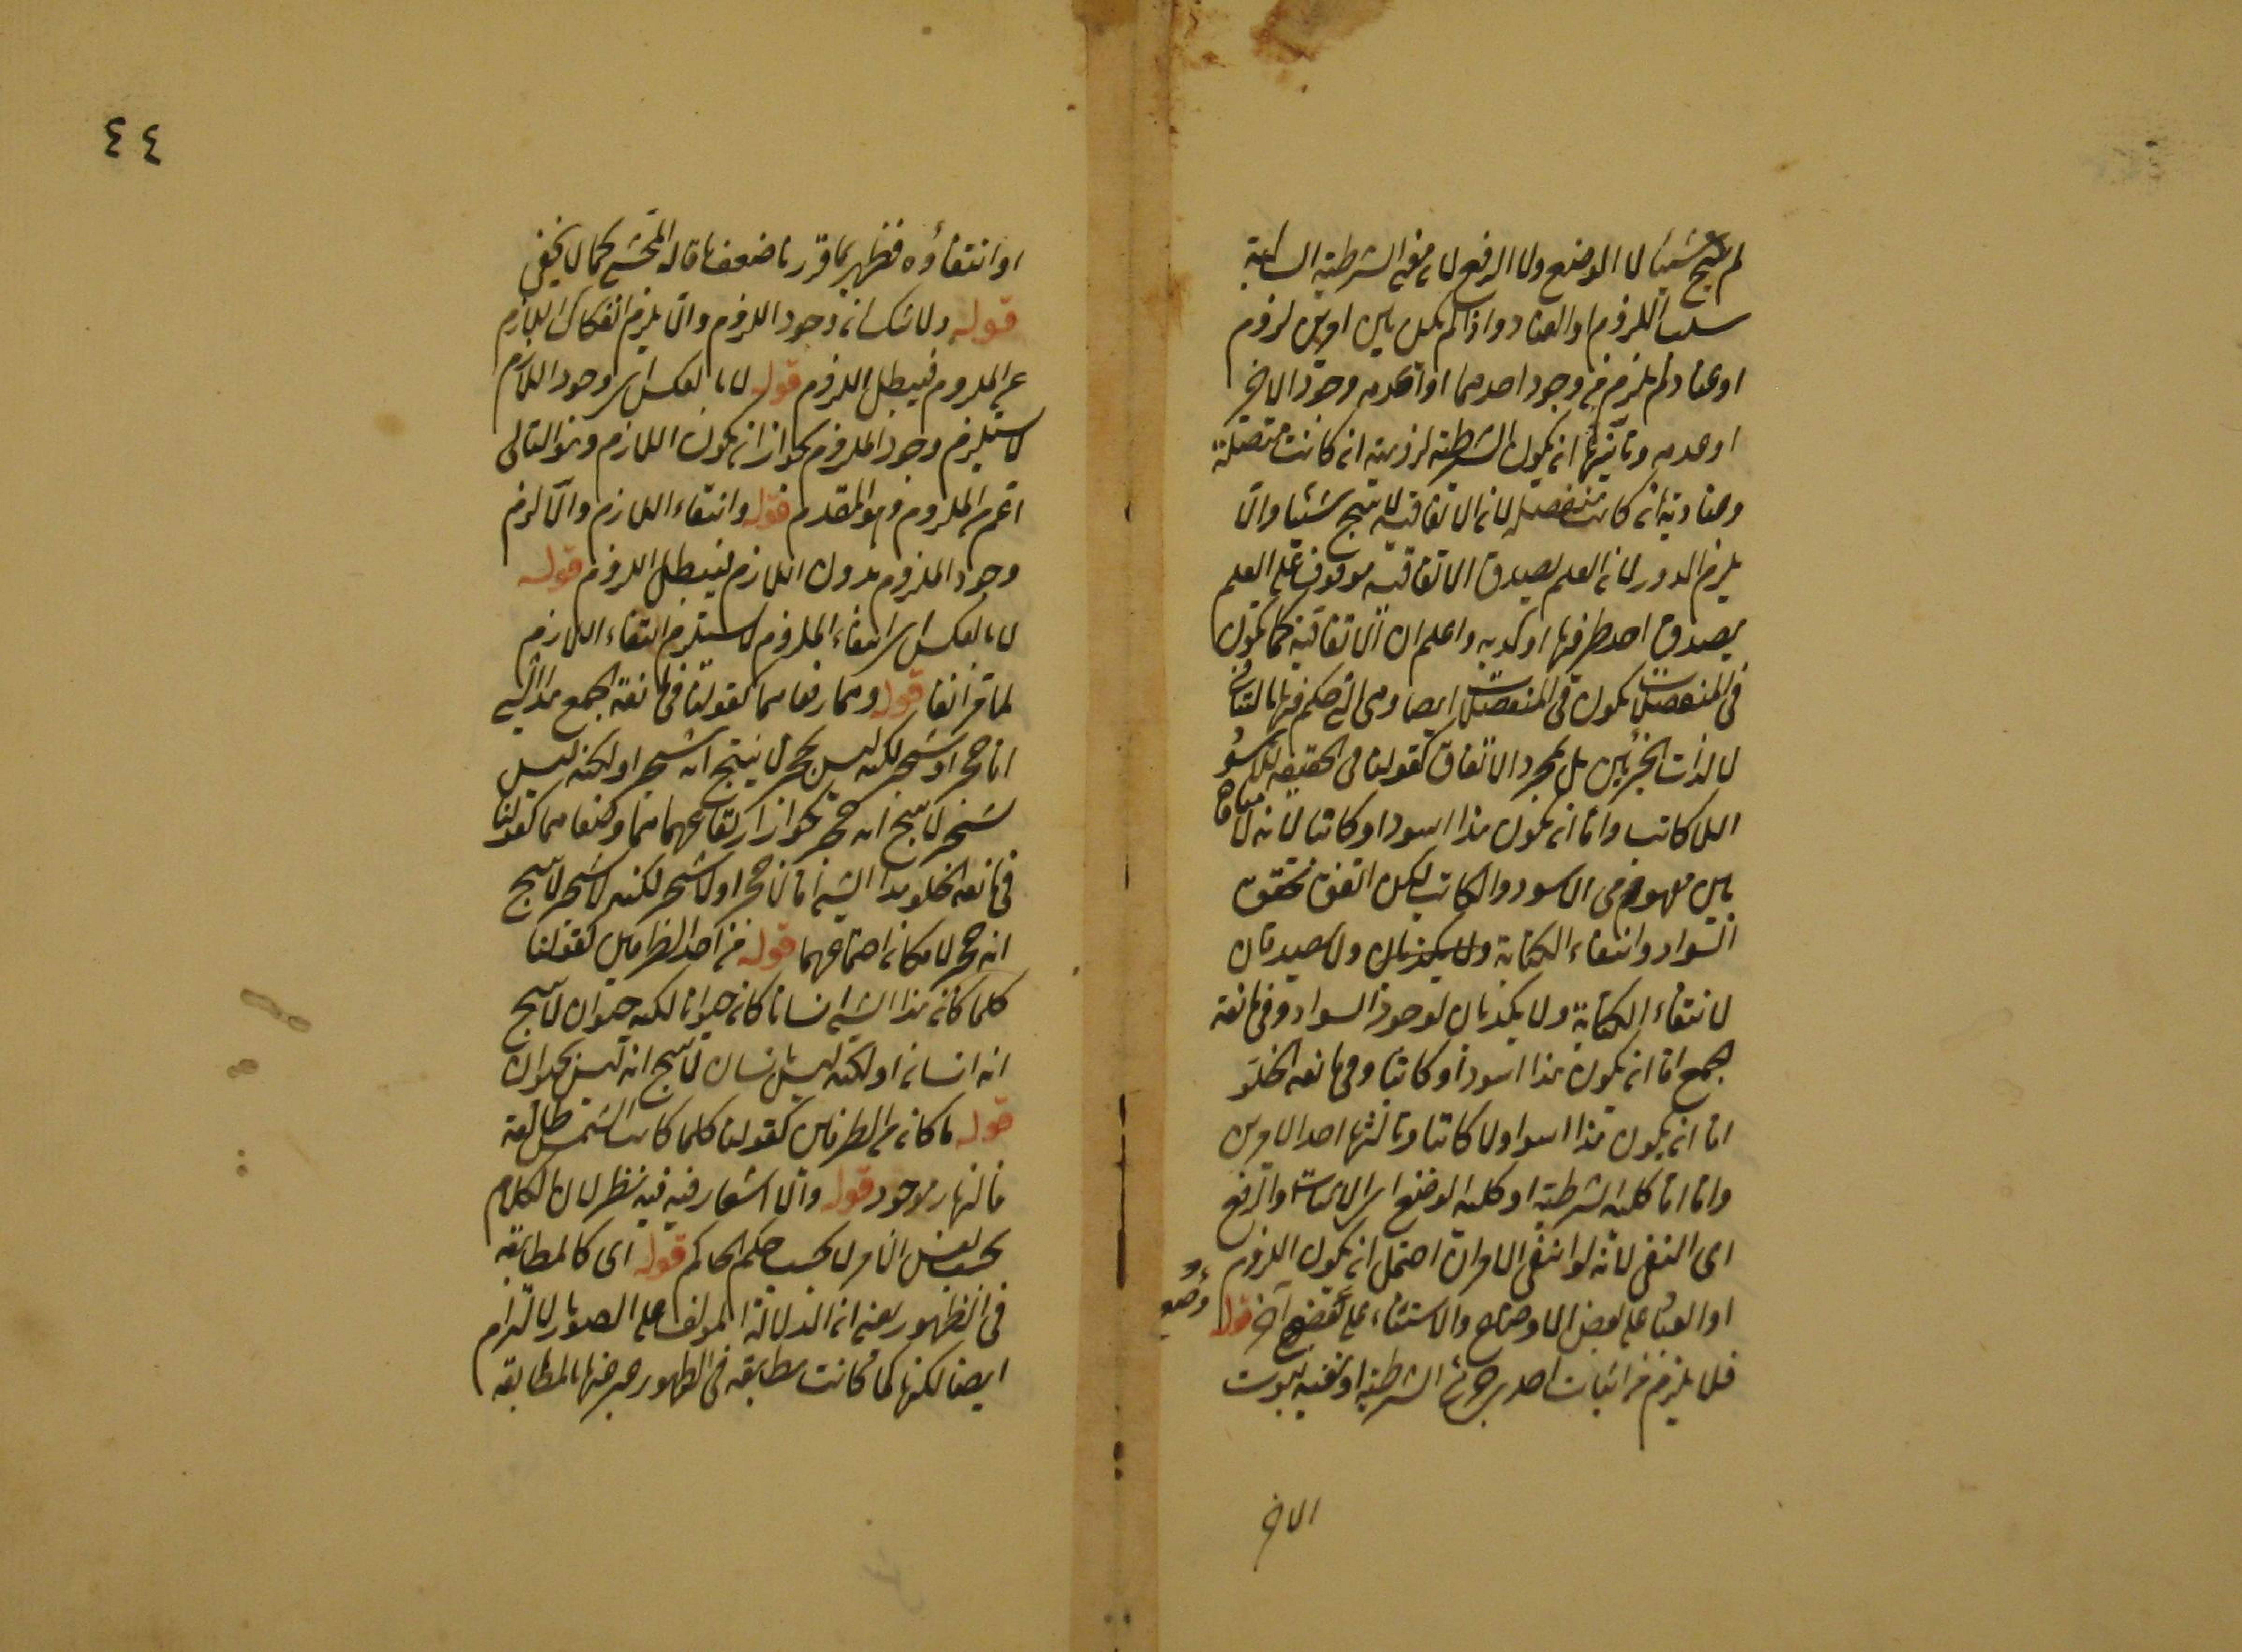 لم ينتج شيئا لا الوضع ولا الرفع لان معنى الشرطية السالبة
سلب اللزوم او العناد واذا لم يكن بين امرين لزوم
او عناد لم يلزم من وجود احدهما او عدمه وجود الاخر
او عدمه وثانيها ان يكون الشرطية لزومية ان كانت متصلة
وعنادية ان كانت منفصلة لان الاتفاقية لا ينتج شيئا والا
يلزم الدور لان العلم بصدق الاتفاقية موقوف على العلم
بصدق احد طرفيها او كذبه واعلم ان الاتفاقية كما تكون
في المتصلات يكون في المنفصلات ايضا وهي التي حكم فيها بالتنافي
لا لذات الجزئين بل بمجرد الاتفاق كقولنا في الحقيقية للاسود
اللا كاتب واما ان يكون هذا اسود او كاتبا لانه لا منافاة
بين مفهومي الاسود والكاتب لكن اتفق تحقق
السواد وانتفاء الكتابة ولا يصدقان
لانتفاء الكتابة ولا يكذبان لوجود السواد وفي مانعة
الجمع اما ان يكون هذا اسود او كاتبا وفي مانعة الخلو
اما ان يكون هذا اسود او لا كاتبا وثالثها احد الامرين
واما اما كلية الشرطية او كلية الوضع اى الاثبات او الرفع
اى النفي لانه لو انتفى الامران احتمل ان يكون اللزوم
او العناد على بعض الاوضاع والاستثناء على وضع آخر قوله
فلا يلزم من اثبات احد جزئى الشرطية او نفيه ثبوت
الاخر
٤٤
او انتفاؤه فظهر بما قررنا ضعف ما قاله المحشى كما لا يخفى
قوله ولا شك ان وجود اللزوم والا يلزم انفكاك اللازم
عن الملزوم فيبطل اللزوم قوله لا بالعكس اى وجود اللازم
لا يستلزم وجود الملزوم لجواز ان يكون اللازم وهو التالى
اعم من الملزوم وهو المقدم قوله وانتفاء اللازم والا لزم
وجود الملزوم بدون اللازم فيبطل اللزوم قوله
لا بالعكس اى انتفاء الملزوم لا يستلزم انتفاء اللازم
لما مر آنفا قوله ومما رفعا هما كقولنا في مانعة الجمع هذا الشىء
اما حجر او شجر لكنه ليس بحجر لا ينتج انه شجر او لكنه ليس
شجر لا ينتج انه حجر لجواز ارتفاعهما معا وضعا هما كقولنا
في مانعة الخلو هذا الشىء اما لا حجر او لا شجر لكنه لا شجر لا ينتج
انه حجر لامكان اجتماعهما قوله من احد الطرفين كقولنا
كلما كان هذا الشىء انسانا كان حيوانا لكنه حيوان لا ينتج
انه انسان او لكنه ليس بانسان لا ينتج انه ليس بحيوان
قوله ما كان من الطرفين كقولنا كلما كانت الشمس طالعة
فالنهار موجود قوله والا اشعار فيه فيه نظر لان الكلام
بحسب نفس الامر لا بحسب حكم الحاكم قوله اى كالمطابقة
في الظهور يعنى ان الدلالة المؤلف على الصور لا التزام
ايضا لكنها لما كانت مطابقة في الظهور عبر عنها بالمطابقة